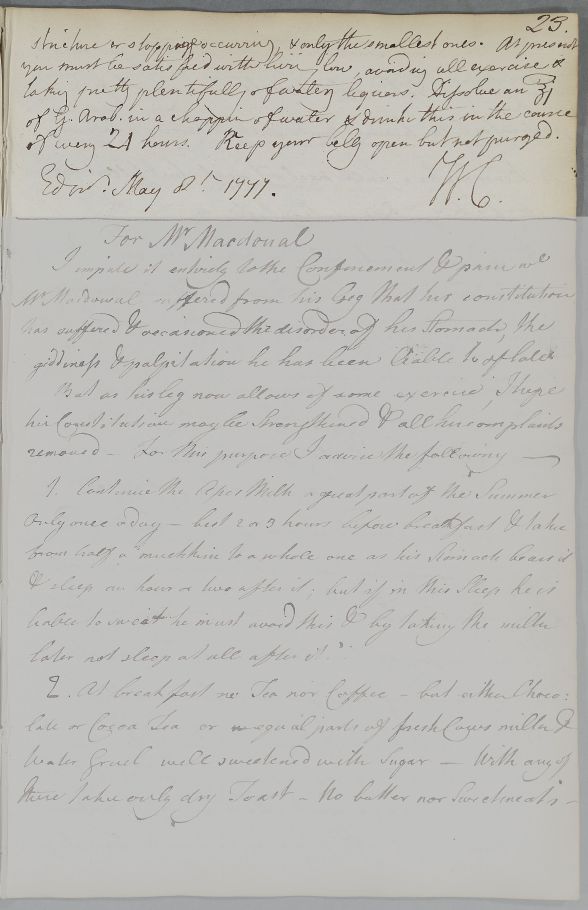 23.
stricture or stopping occurring, & only the smallest ones. At present
you must be satisfied with living low avoiding all exercise &
taking pretty plentifully of watery liquors. Dissolve an ℥j
of G. Arab. in a choppin of water & drink this in the course
of every 24 hours. Keep your belly open but not purged.
Edinr. May 8th 1777. W.C.
For Mr Macdoual
I impute it entirely to the Confinement & pain wc
Mr Macdowal suffered from his Leg that his constitution
has suffered & occasioned the disorder of his Stomach, the
giddiness & palpitation he has been liable to of late
But as his leg now allows of some exercise, I hope
his Constitution may be strengthened & all his complaints
removed – For this purpose I advise the following —
1. Continue the Apes Milk a great part of the Summer
only once a day – best 2 or 3 hours before breakfast & take
from half a mutchkin to a whole one as his Stomach bears it
& sleep an hour or two after it; but if in this Sleep he is
liable to sweat he must avoid this & by taking the milk
later not sleep at all after it.
2. At breakfast no Tea nor Coffee – but either Choco:
late or Cocoa Tea or equal parts of fresh Cows milk &
Water Gruel well sweetened with Sugar — With any of
these take only dry Toast – No butter nor Sweetmeats –